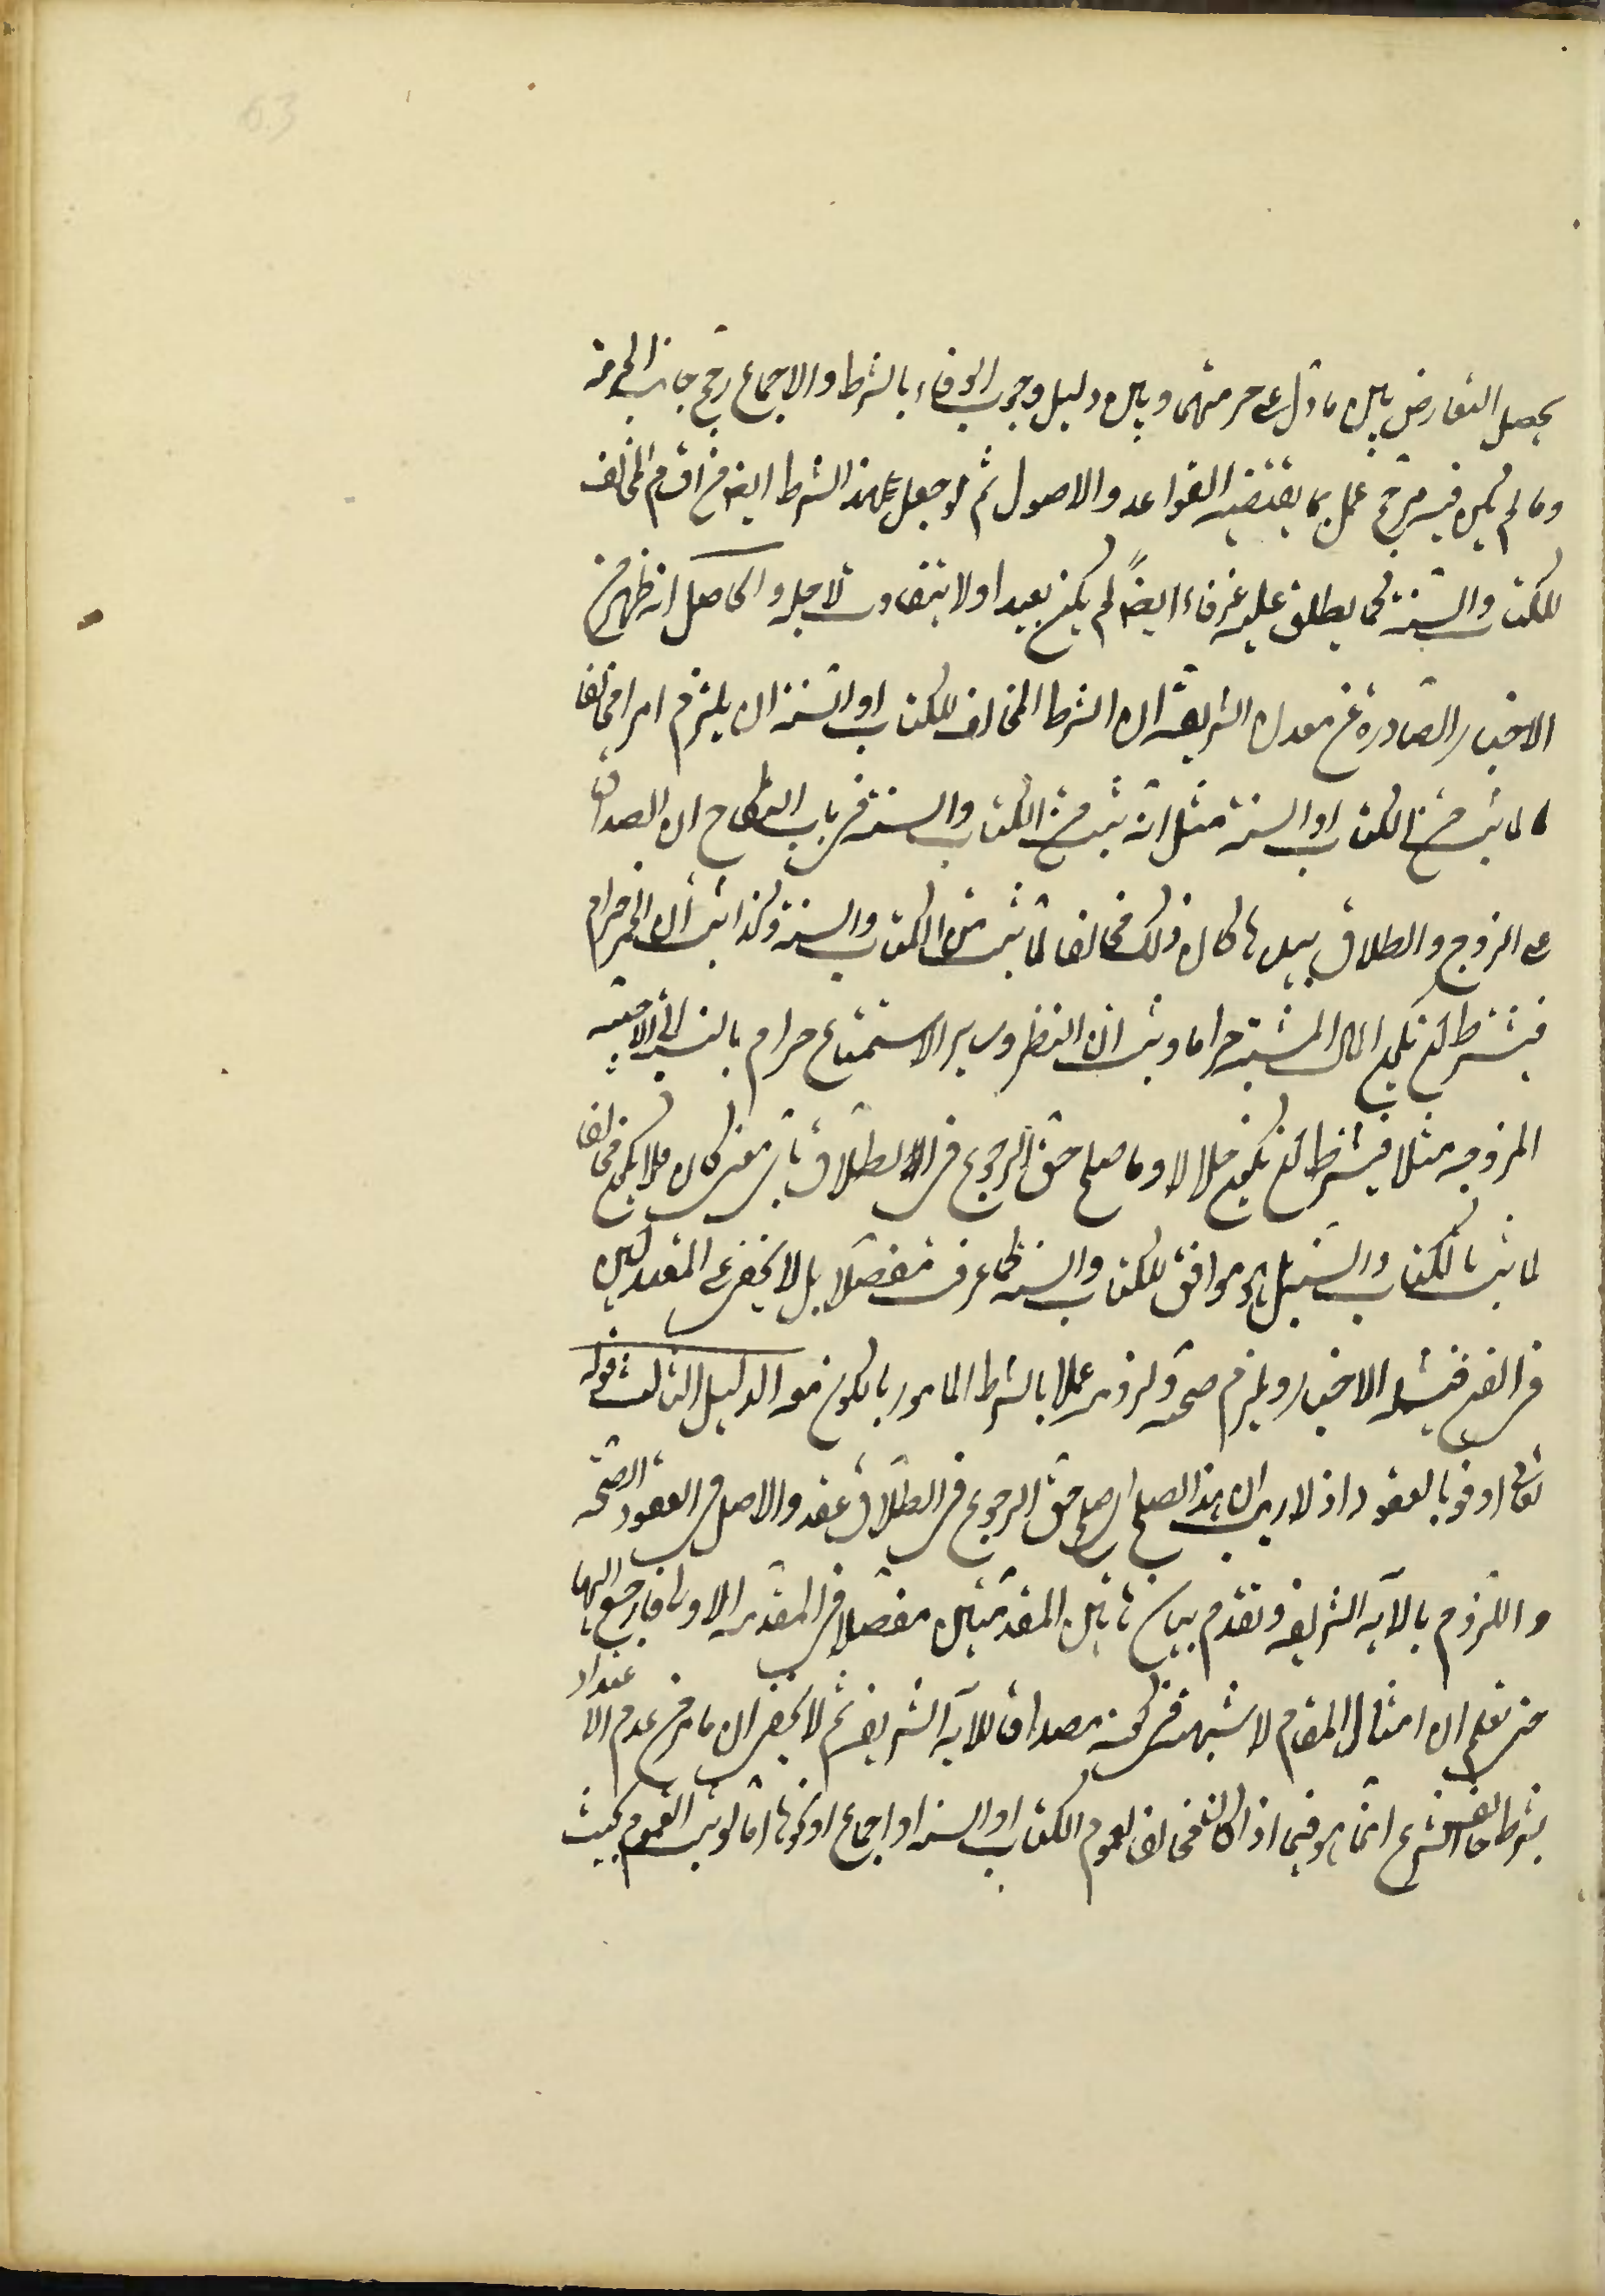 63
يحصل التعارض بين ما دل على حرمتهما وبين دليل وجوب الوفاء بالشرط والاجماع رجح جانب الحرمة
وما لم يكن فيه مرجح عمل بما يقتضيه القواعد والاصول ثم لو جعل هذا الشرط ايضا من اقسام المخالف
للكتاب والسنة كما يطلق عليه عرفاء ايضاً لم يكن بعيدا ولا يتفاوت لاجله والحاصل انه ظهر من
الاخبار الصادرة عن معدن الشريعة ان الشرط المخالف للكتاب او السنة ان يلتزم امرا مخالفا
لما ثبت من الكتاب او السنة مثل انه ثبت من الكتاب والسنة في باب النكاح ان الصداق
على الزوج والطلاق بيده كان ذلك مخالفا لما ثبت من الكتاب والسنة وكذا ثبت ان الخمر حرام
فيشترط ان يكون المال المشتبه حراما وثبت ان النظر وساير الاستمتاع حرام بالنسبة الى الاجنبية
المزوجة مثلا فيشترط ان يكون حلالا وما صلح حق الرجوع في الطلاق باي معنى كان فلا يكون مخالفا
لما ثبت بالكتاب والسنة بل هو موافق للكتاب والسنة كما عرفت مفصلا بل لا يخفى على المتعدلين
في الفن فيشمله الاخبار ويلزم صحته ولزومه عملا بالشرط المامور بالكون معه الدليل الثالث قوله
تعالى اوفوا بالعقود اذ لا ريب ان هذا الصلح اي صلح حق الرجوع في الطلاق عقد والاصل في العقود الصحة
واللزوم بالآية الشريفة وتقدم بيان هاتين المقدمتين مفصلا في المقدمة الاولى فارجع اليها
حتى تعلم ان امثال المقام لا شبهة في كونه مصداقا للآية الشريفة ثم لا يخفى ان ما مر من عدم الاعتداد
بشرط خالف الشرع انما هو فيما اذا كان مخالفا لعموم الكتاب او السنة او اجماع او نحوها اما لو ثبت العموم بحيث